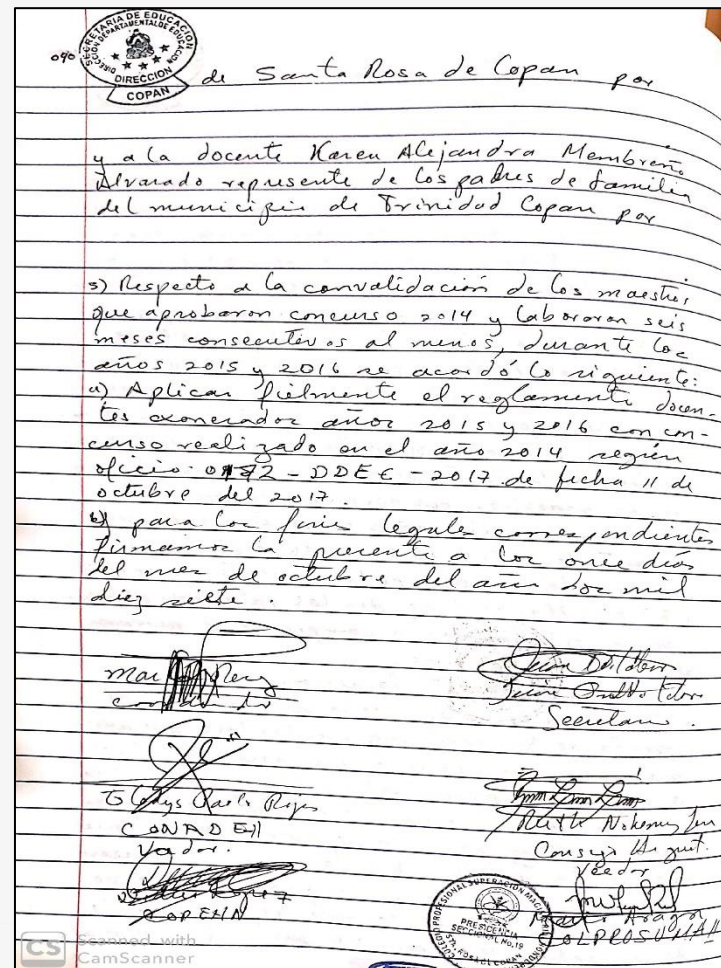 040
SECRETARIA DE EDUCACION
DIRECCION DEPARTAMENTAL DE EDUCACION
DIRECCION
COPAN
de Santa Rosa de Copan por
y a la docente Karen Alejandra Membreño
Alvarado represente de los padres de familia
del municipio de Trinidad Copan por
5) Respecto a la convalidación de los maestros
que aprobaron concurso 2014 y laboraron seis
meses consecutivos al menos, durante los
años 2015 y 2016 se acordó lo siguiente:
a) Aplicar fielmente el reglamento docen-
tes exonerados años 2015 y 2016 con con-
curso realizado en el año 2014 según
oficio: DDEC-2017 de fecha 11 de
octubre del 2017.
b) para los fines legales correspondientes
firmamos la presente a los once días
del mes de octubre del año dos mil
diez siete.
Secretario.
Gladys
CONADEH
Veedor
Ruth
Veedor
COPEMH
COLEGIO PROFESIONAL SUPERACION MAGISTERIAL
PRESIDENCIA
SECCIONAL No.19
STA. ROSA DE COPAN
COLPROSUMAH
CS Scanned with
CamScanner